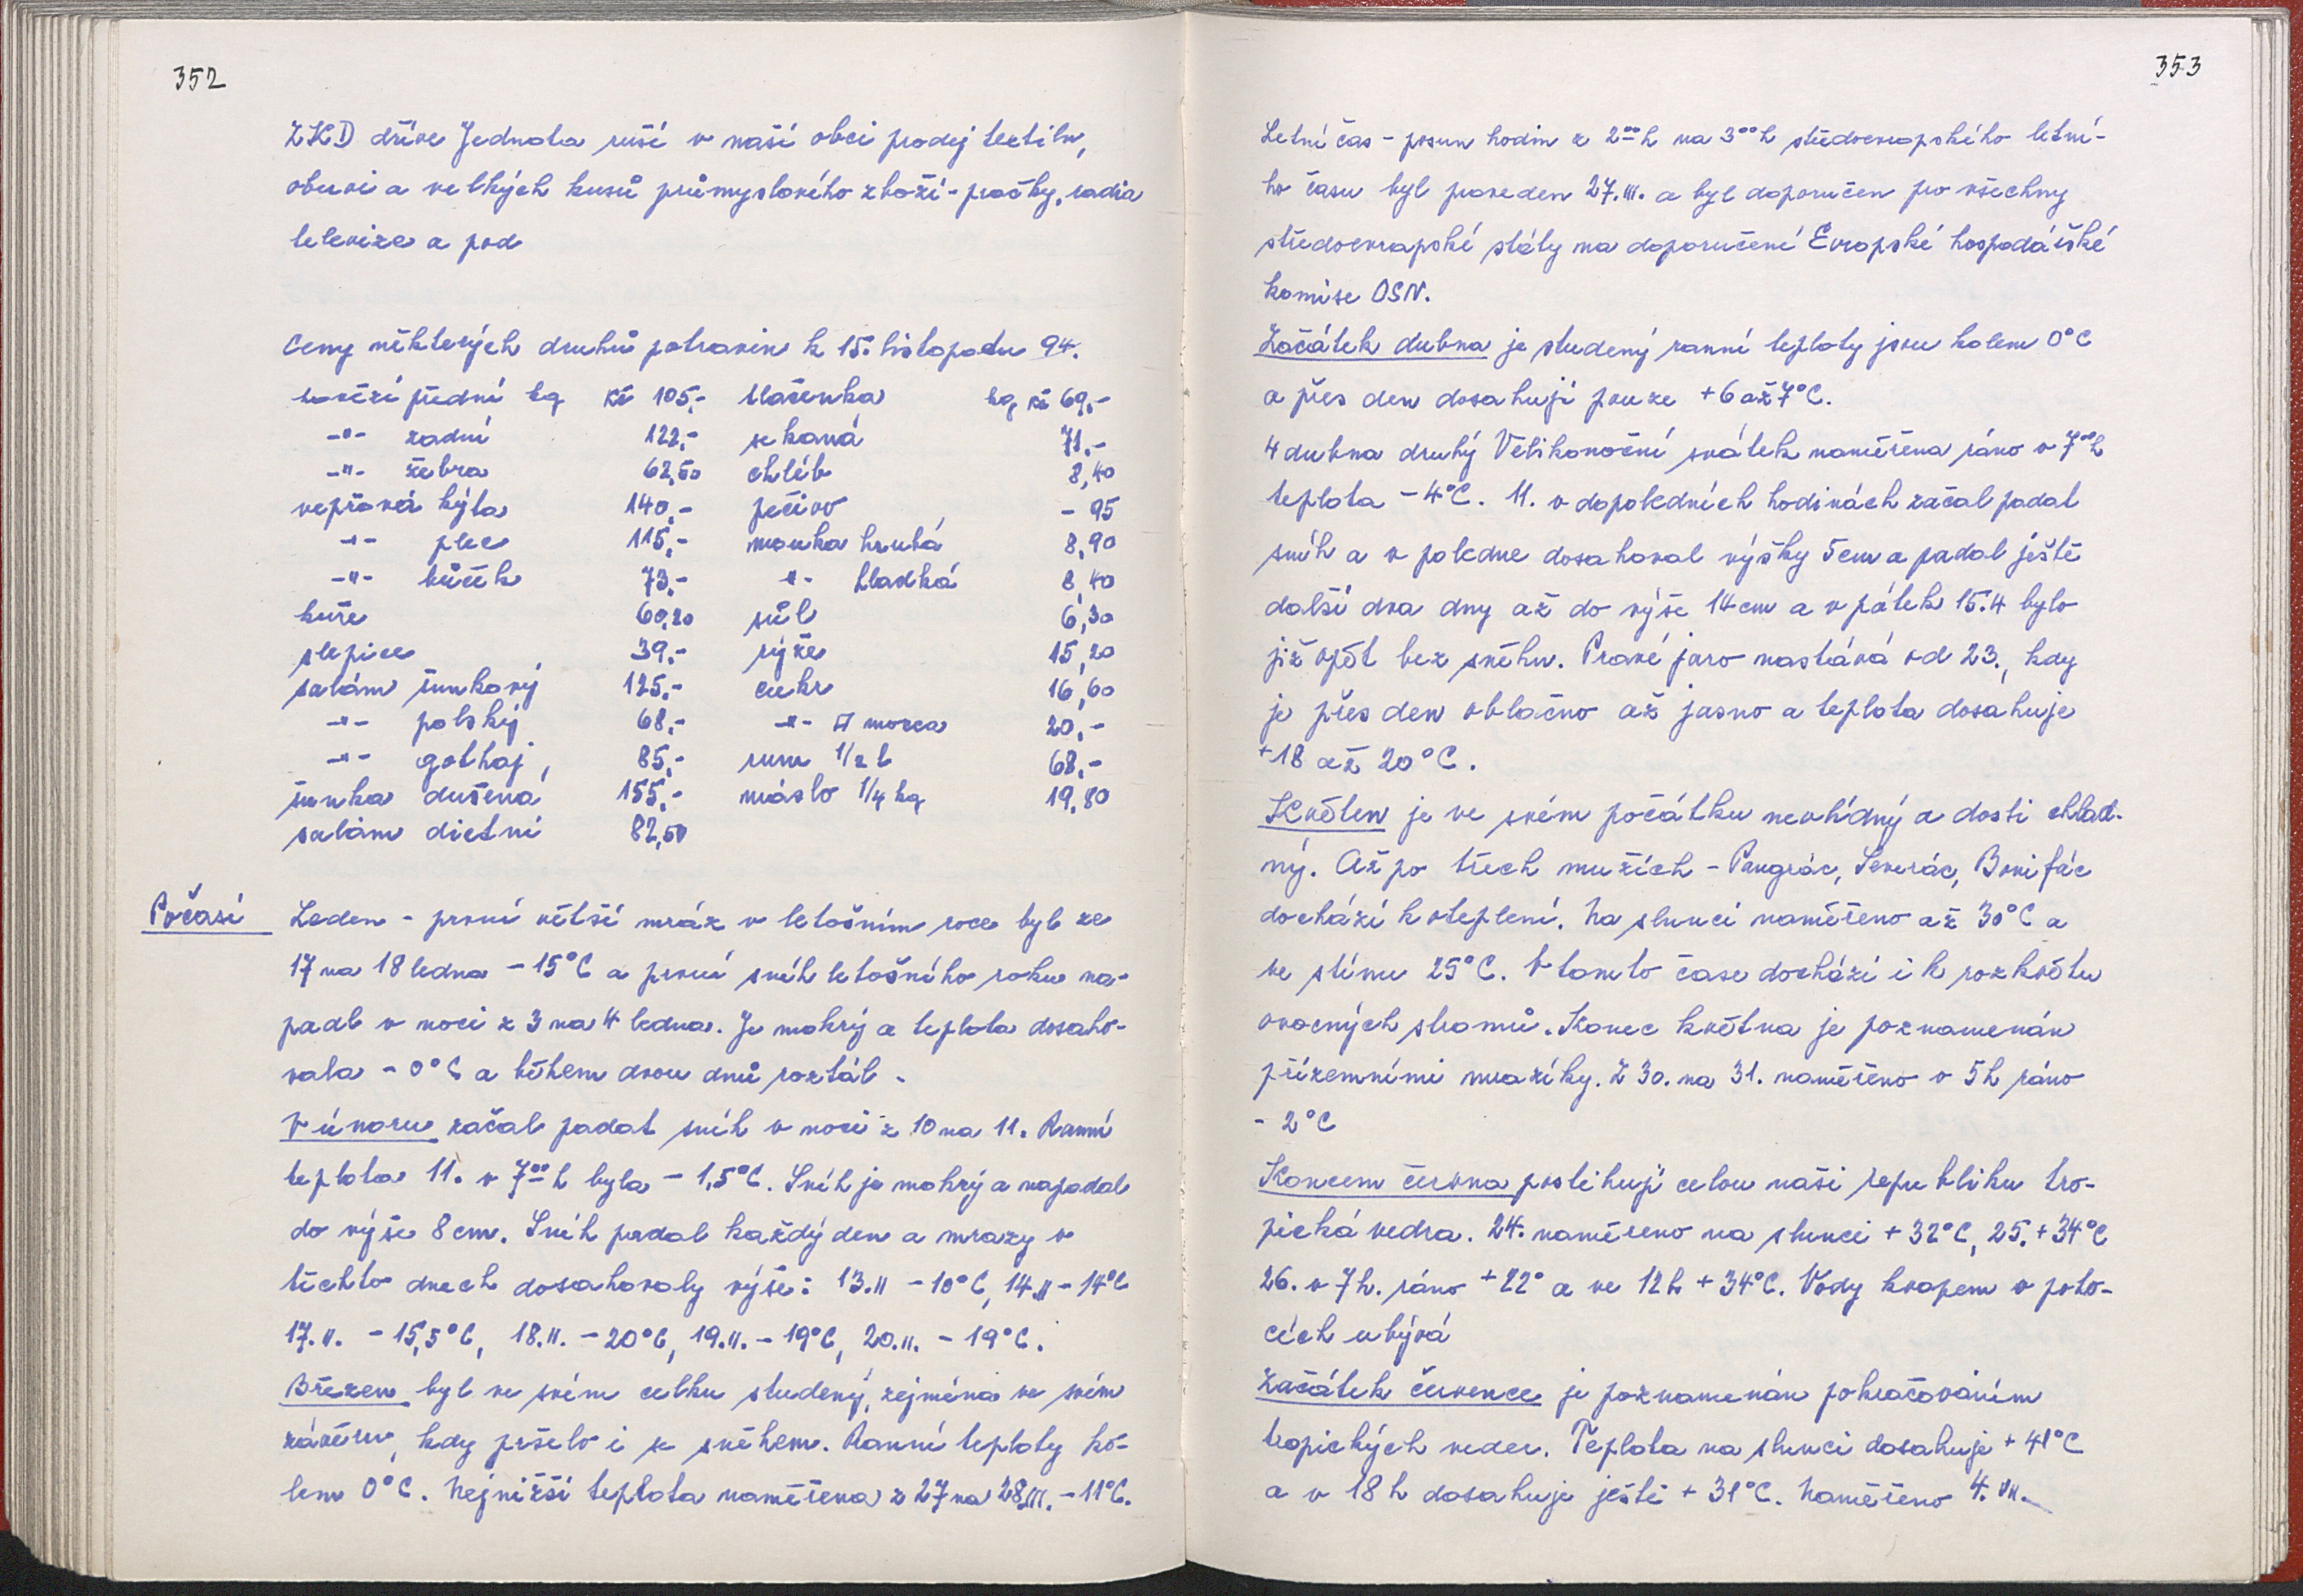 352
ZKD dříve Jednota ruší v naší obci prodej textilu,
obuvi a velkých kusů průmyslového zboží - pračky, radia
televize a pod
Ceny některých druhů potravin k 15. listopadu 94.
hovězí přední kg Kč 105,- tlačenka kg Kč 69,-
-"- zadní 122,- sekaná 71,-
-"- žebra 62,50 chléb 8,40
vepřová kýta 140,- pečivo - 95
-"- plec 115,- mouka hrubá 8,90
-"- bůček 73,- -"- hladká 8,40
kuře 60,20 sůl 6,30
slepice 39,- rýže 15,20
salám šunkový 125,- cukr 16,60
-"- polský 68,- -"- morca 20,-
-"- gothaj, 85,- rum 1/2 l 68,-
šunka dušená 155,- máslo 1/4 kg 19,80
salám dietní 82,50
Počasí Leden - první větší mráz v letošním roce byl ze
17 na 18 ledna - 15°C a první sníh letošního roku na-
padl v noci z 3 na 4 ledna. Je mokrý a teplota dosaho-
vala - 0°C a během dvou dnů roztál.
V únoru začal padat sníh v noci z 10 na 11. Ranní
teplota 11. v 7⁰⁰ h byla - 1,5°C. Sníh je mokrý a napadal
do výše 8 cm. Sníh padal každý den a mrazy v
těchto dnech dosahovaly výše: 13.II - 10°C, 14.II - 14°C
17.II. - 15,5°C, 18.II. - 20°C, 19.II. - 19°C, 20.II. - 19°C.
Březen byl ve svém celku studený, zejména ve svém
závěru, kdy pršelo i se sněhem. Ranní teploty ko-
lem 0°C. Nejnižší teplota naměřena z 27 na 28.III. - 11°C.
353
Letní čas - posun hodin z 2⁰⁰ h na 3⁰⁰ h středoevropského letní-
ho času byl proveden 27.III. a byl doporučen pro všechny
středoevropské státy na doporučení Evropské hospodářské
komise OSN.
Začátek dubna je studený ranní teploty jsou kolem 0°C
a přes den dosahují pouze +6 až 7°C.
4 dubna druhý Velikonoční svátek naměřena ráno v 7⁰⁰ h
teplota - 4°C. 11. v dopoledních hodinách začal padat
sníh a v poledne dosahoval výšky 5 cm a padal ještě
další dva dny až do výše 14 cm a v pátek 15.4 bylo
již opět bez sněhu. Pravé jaro nastává od 23., kdy
je přes den oblačno až jasno a teplota dosahuje
+18 až 20°C.
Květen je ve svém počátku nevlídný a dosti chlad-
ný. Až po třech mužích - Pangrác, Severác, Bonifác
dochází k oteplení. Na slunci naměřeno až 30°C a
ve stínu 25°C. V tomto čase dochází i k rozkvětu
ovocných stromů. Konec května je poznamenán
přízemními mrazíky. Z 30. na 31. naměřeno v 5h ráno
- 2°C
Koncem června postihují celou naši republiku tro-
pická vedra. 24. naměřeno na slunci + 32°C, 25. + 34°C
26. v 7h. ráno +22° a ve 12 h + 34°C. Vody kvapem v poto-
cích ubývá
Začátek července je poznamenán pokračováním
tropických veder. Teplota na slunci dosahuje + 41°C
a v 18 h dosahuje ještě + 31°C. Naměřeno 4. VII.